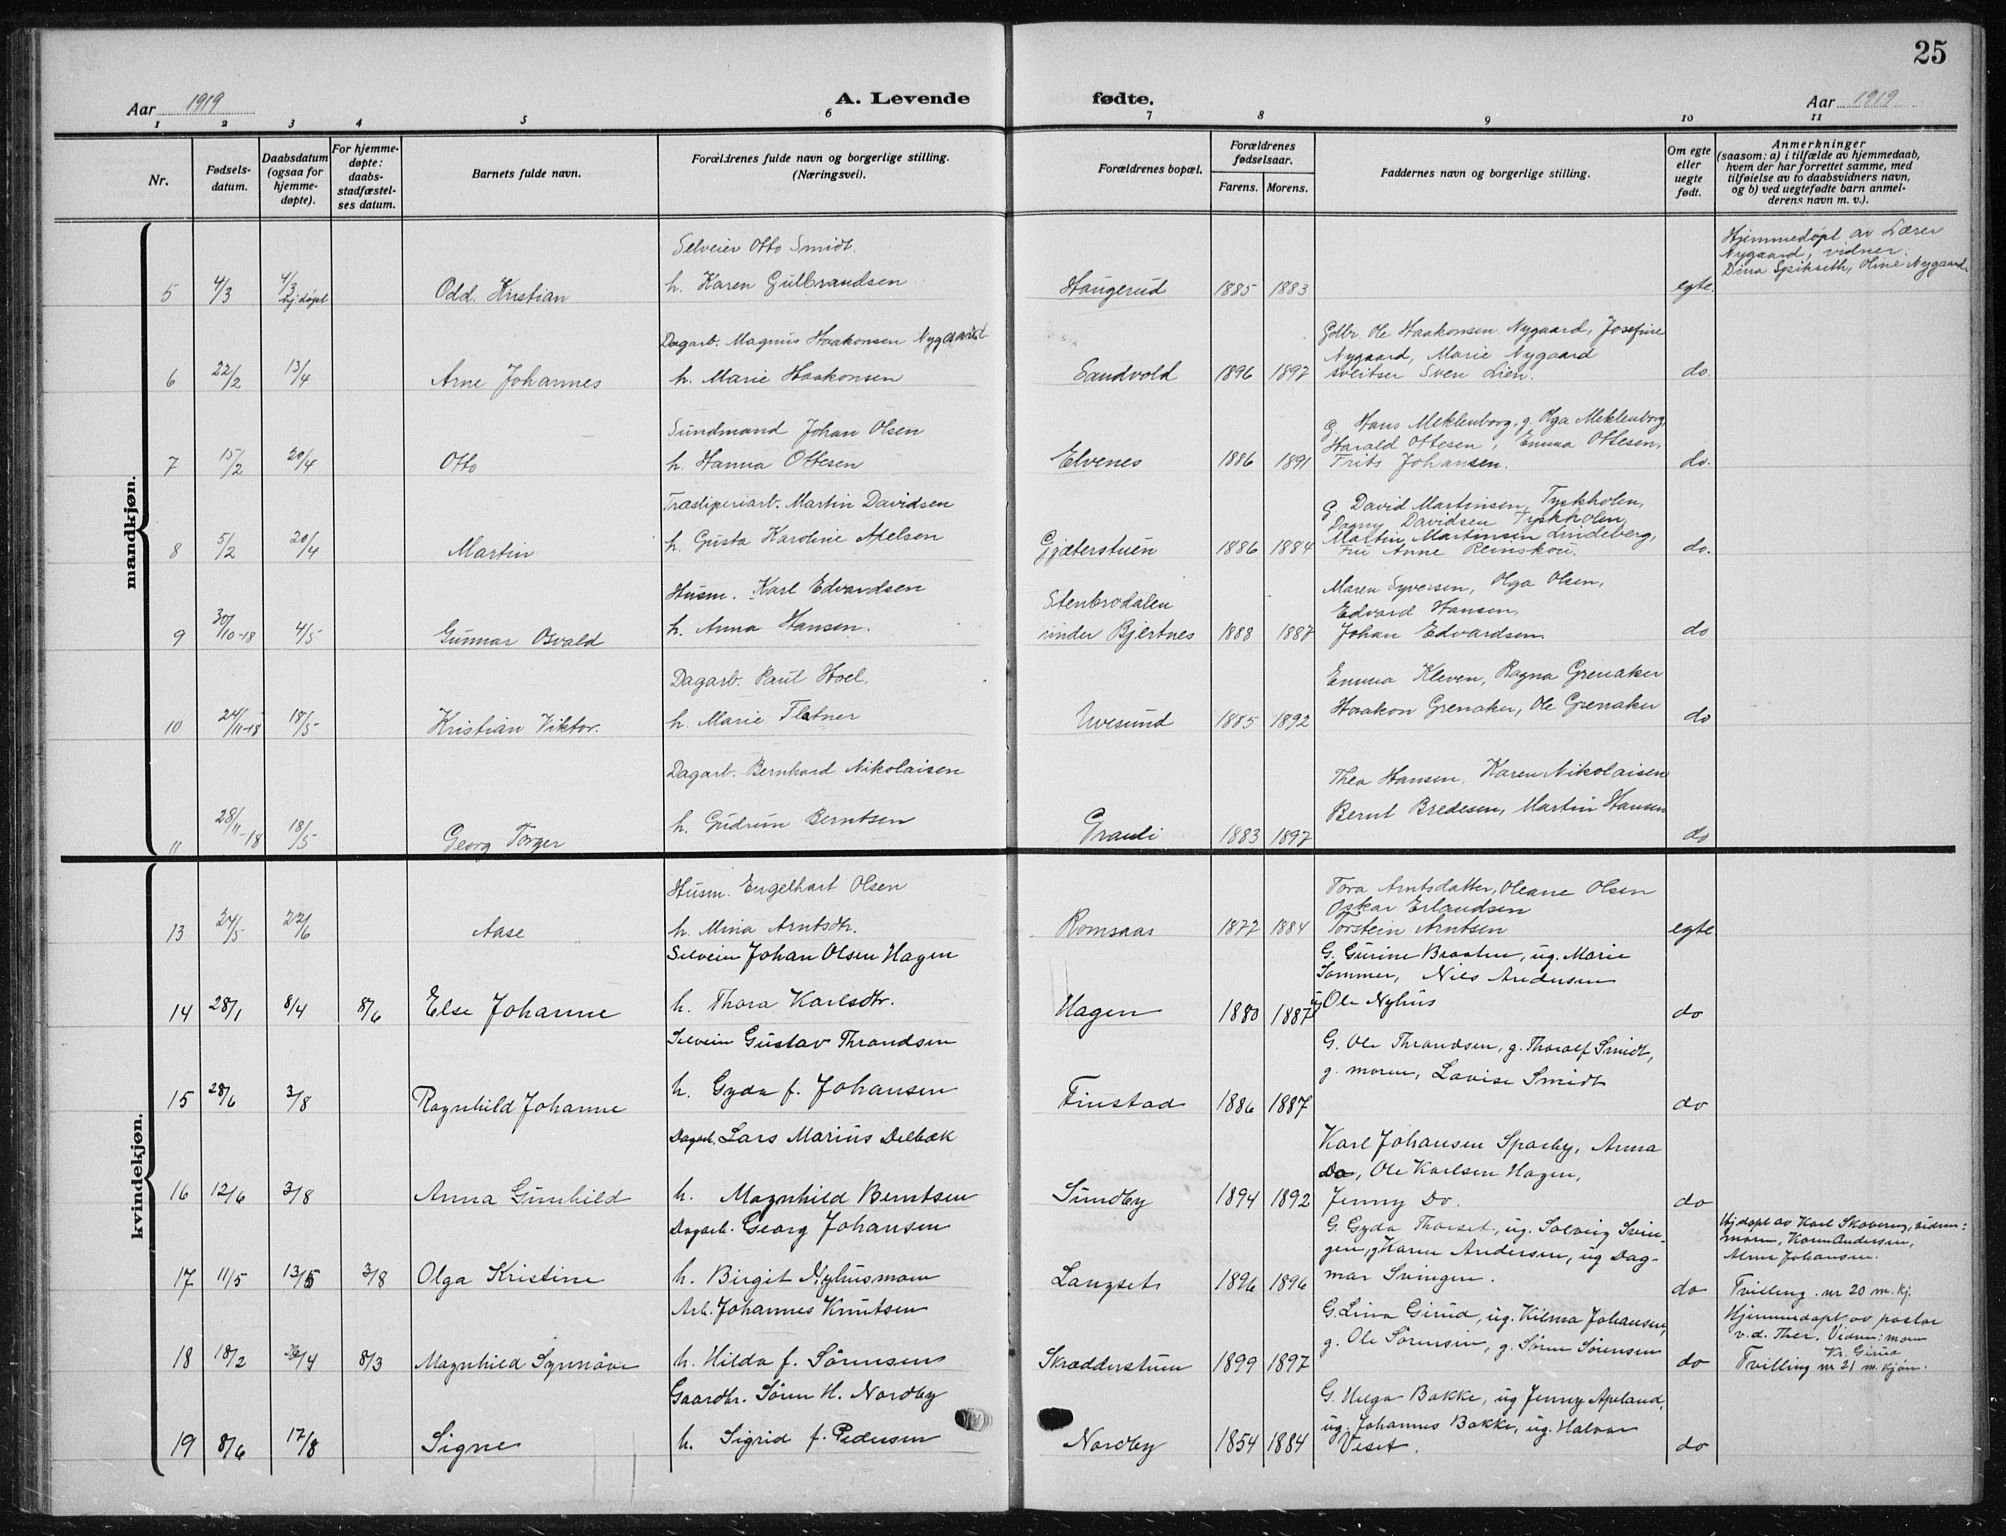 25
Aar 1919
A. Levende
fødte.
Aar 1919
1 2 3 4 5 6 7 8 9 10 11
Nr.
Fødsels-
datum.
Daabsdatum
(ogsaa for
hjemme-
døpte).
For hjemme-
døpte:
daabs-
stadfæstel-
ses datum.
Barnets fulde navn.
Forældrenes fulde navn og borgerlige stilling.
(Næringsvei).
Forældrenes bopæl.
Forældrenes
fødselsaar.
Farens. Morens.
Faddernes navn og borgerlige stilling.
Om egte
eller
uegte
født.
Anmerkninger
(saasom: a) i tilfælde av hjemmedaab,
hvem der har forrettet samme, med
tilføielse av to daabsvidners navn,
og b) ved uegtefødte barn anmel-
derens navn m. v.).
mandkjøn.
Selveier Otto Smidt.
Hjemmedøpt av Lærer
Nygaard, vidner:
Dina Spikseth, Oline Nygaard.
5 4/3 4/3 hjdøpt Odd. Kristian h. Karen Gulbrandsen Haugerud 1885 1883 egte.
Dagarb. Magnus Haakonsen Nygaard
Gdbr. Ole Haakonsen Nygaard, Josefine
Nygaard, Marie Nygaard
6 22/2 13/4 Arne Johannes h. Marie Haakonsen Sandvold 1896 1897 sveitser Sven Lien. do.
Sundmand Johan Olsen
G. Hans Meklenborg, g. Olga Meklenborg
Harald Ottesen, Emma Ottesen,
7 15/2 20/4 Otto h. Hanna Ottesen Elvenes 1886 1891 Frits Johansen. do.
Træsliperiarb. Martin Davidsen
G. David Martinsen, Tyskholen,
Dagny Davidsen Tyskholen
Martin Martinsen Lindeberg,
8 5/2 20/4 Martin h. Gusta Karoline Apelsen Gjæterstuen 1886 1884 Fru Anne Remskou. do.
Husm. Karl Edvardsen
Stenbrodalen
Maren Syversen, Olga Olsen,
Edvard Hansen,
9 30/10-18 4/5 Gunnar Osvald h. Anna Hansen. under Bjertnes 1888 1887 Johan Edvardsen do
Dagarb. Paul Hoel.
Emma Kleven, Ragna Grenaker
10 24/11-18 18/5 Kristian Viktor. h. Marie Flatner Uvesund 1885 1892 Haakon Grenaker, Ole Grenaker do
Dagarb. Bernhard Nikolaisen
Thea Hansen, Karen Nikolaisen
11 28/11-18 18/5 Georg Torger h. Gudrun Berntsen Grauli 1883 1897 Bernt Bredesen, Martin Hansen do
kvindekjøn.
Husm. Engelhart Olsen
Tora Arntsdatter, Oleane Olsen
Oskar Erlandsen
13 24/5 22/6 Aase h. Mina Arntsdtr. Romsaas 1877 1884 Torstein Arntsen egte
Selveier Johan Olsen Hagen
G. Gurine Braaten, ug. Marie
Sommer, Nils Andersen
14 28/1 8/4 8/6 Else Johanne h. Thora Karlsdtr. Hagen 1880 1887 ug Ole Nyhus do
Selveier Gustav Thrandsen
G. Ole Thrandsen, g. Thoralf Smidt,
g. moren, Lovise Smidt
15 28/6 3/8 Ragnhild Johanne h. Gyda f. Johansen Finstad 1886 1887 do
Dagarb. Lars Marius Delbæk
Karl Johansen Sparby, Anna
Do, Ole Karlsen Hagen,
16 12/6 3/8 Anna Gunhild h. Magnhild Berntsen Sundby 1894 1892 Jenny Do. do
Dagarb. Georg Johansen
G. Gyda Thorset, ug. Solveig Svin-
gen, g. Karen Andersen, ug Dag-
Hjdøpt av Karl Skovering, vidner:
moren, Karen Andersen,
Alma Johansen.
17 11/5 13/5 3/8 Olga Kristine h. Birgit Nyhusmoen Langset 1896 1896 mar Svingen. do Tvilling nr 20 m. kj.
Arb. Johannes Knutsen
G. Lina Girud, ug. Hilma Johansen,
g. Ole Sørensen, g. Søren Sørensen
Hjemmedøpt av pastor
v.d. Ther. Vidner: moren
Kr. Girud
18 18/2 8/3 Magnhild Synnøve h. Hilda f. Sørensen Skrædderstuen 1899 1897 do Tvilling nr 21 m. kjøn.
Gaardbr. Søren H. Nordby
G. Helga Bakke, ug Jenny Apeland,
ug. Johannes Bakke, ug. Halvor
19 8/6 17/8 Signe h. Sigrid f. Pedersen Nordby 1854 1884 Veset. do